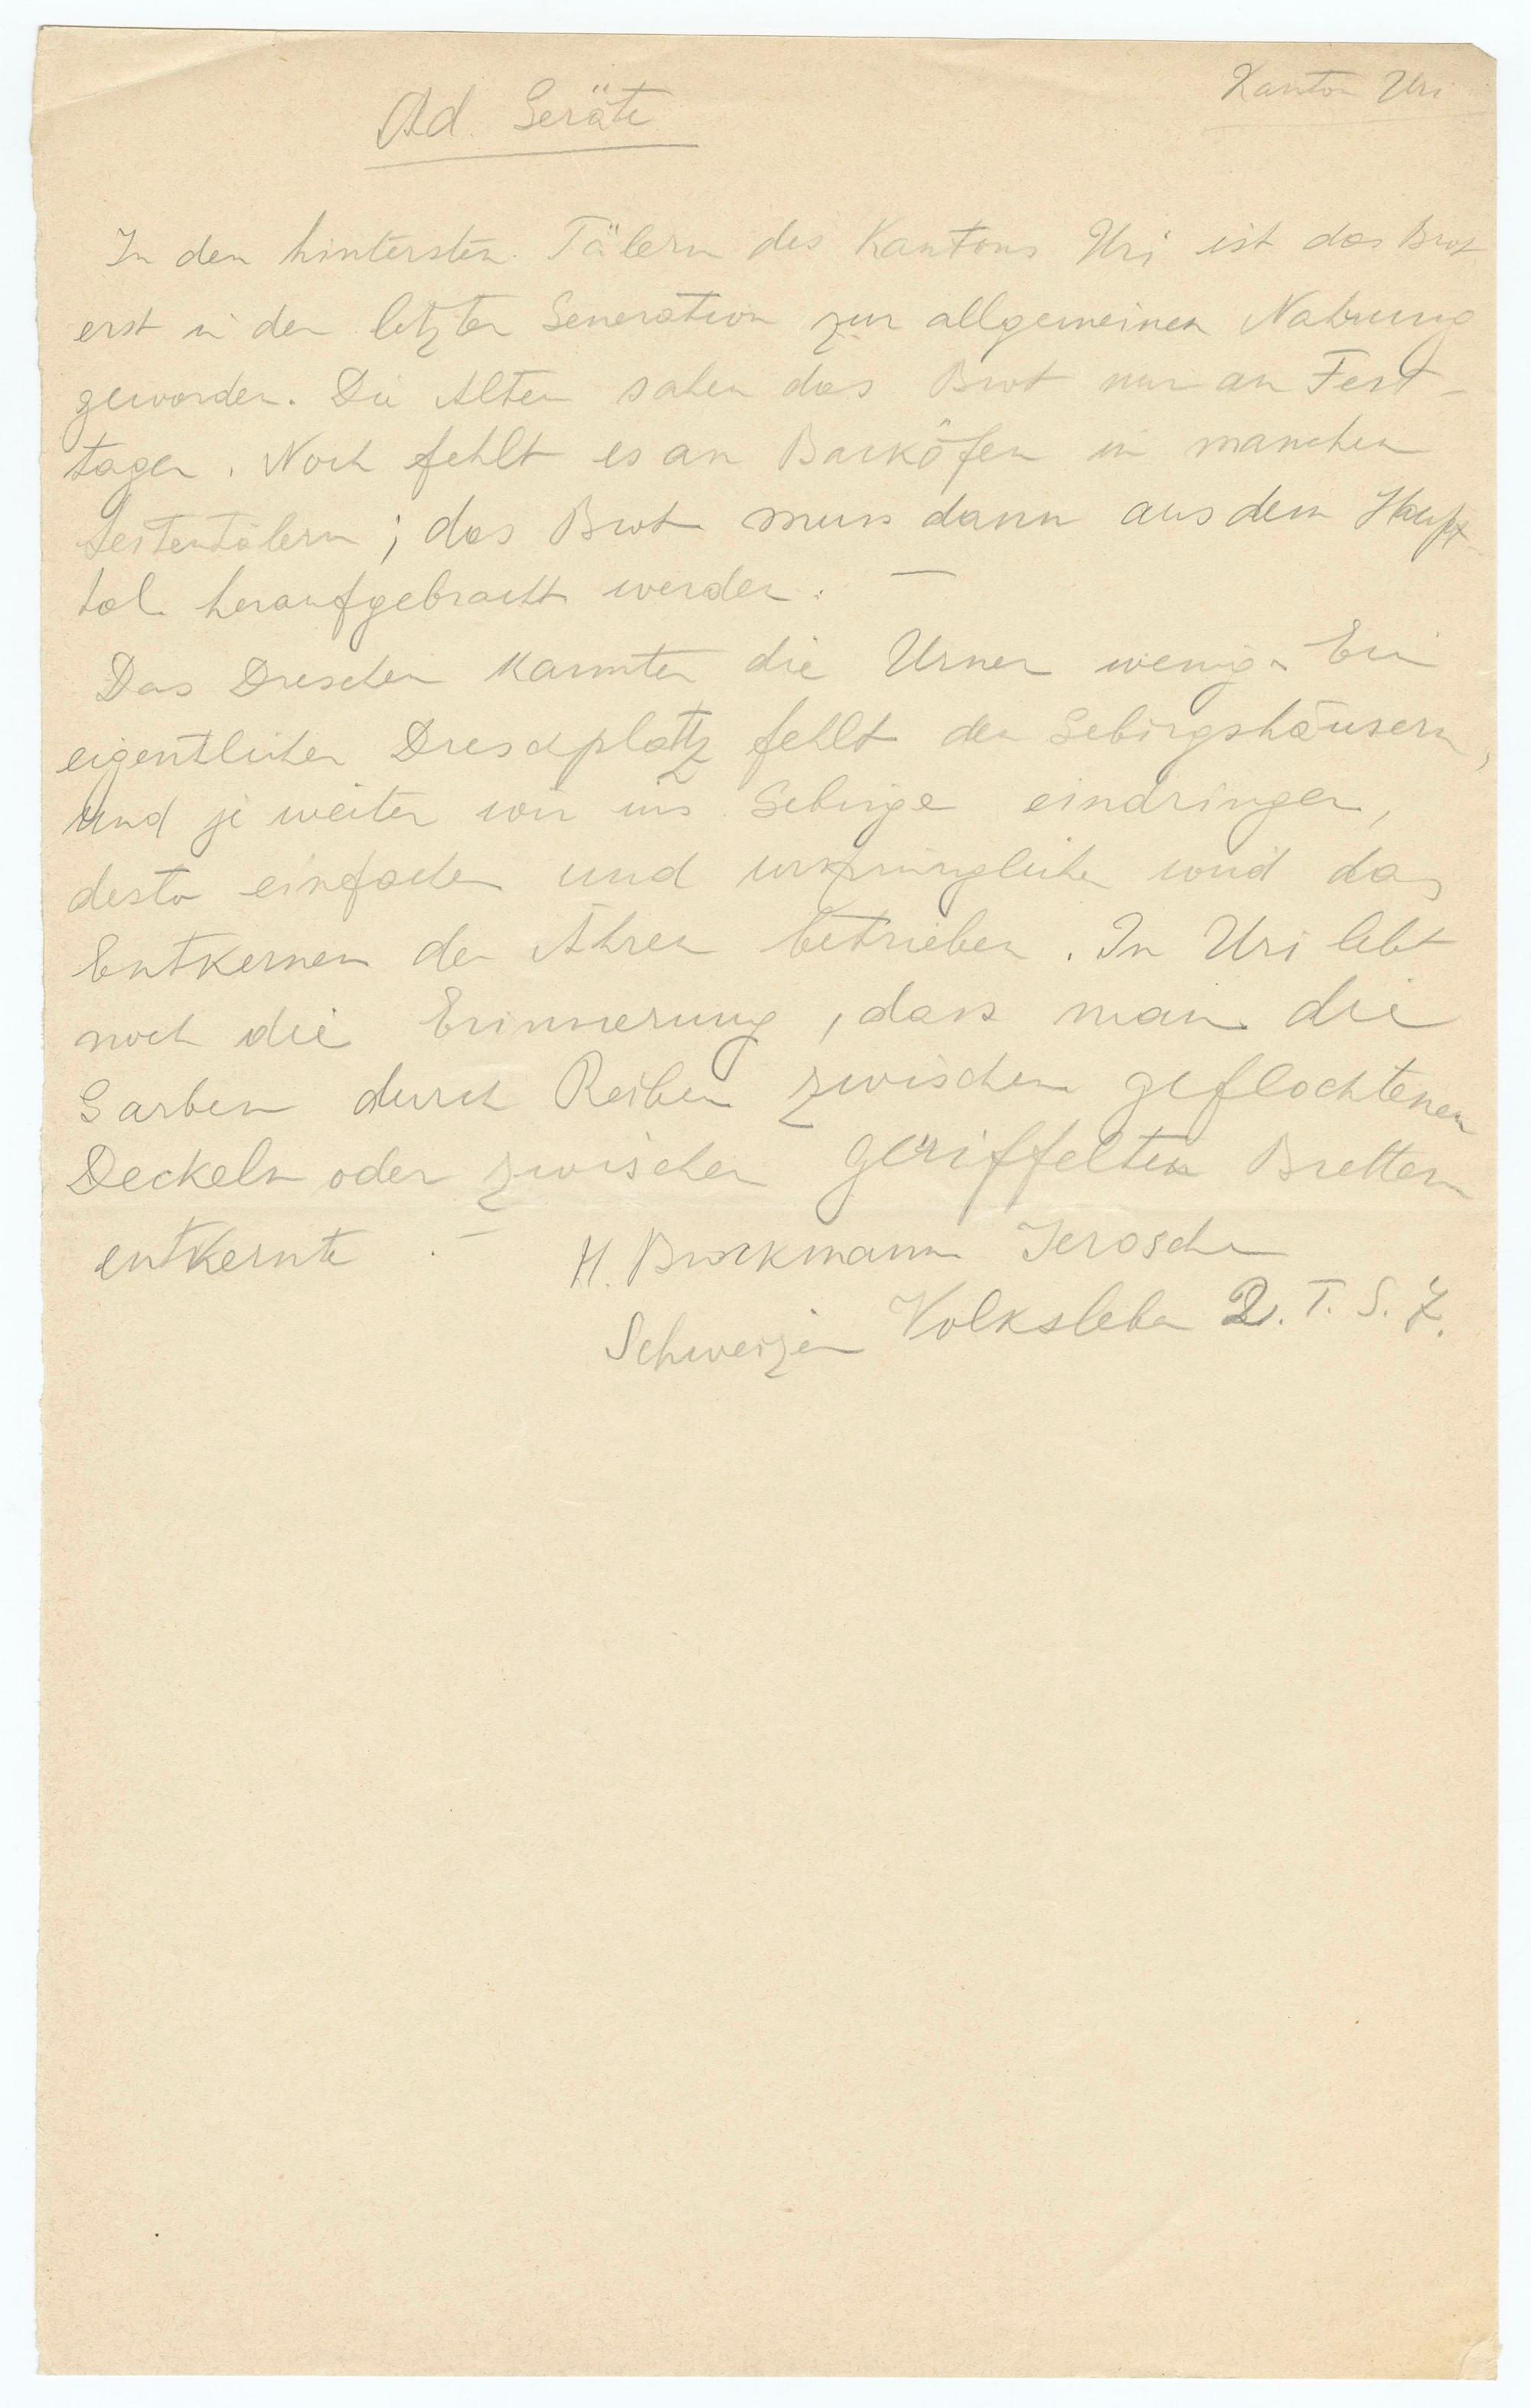 Kanton Uri
Ad. Geräte
In den hintersten Tälern des Kantons Uri ist das Brot
erst in der letzten Generation zur allgemeinen Nahrung
geworden. Die Alten sahen das Brot nur an Fest-
tagen. Noch fehlt es an Backöfen in manchen
Seitentälern; das Brot muss dann aus dem Haupt-
tal heraufgebracht werden. —
Das Dreschen kannten die Urner wenig. Ein
eigentlicher Dreschplatz fehlt den Gebirgshäusern,
und je weiter wir ins Gebirge eindringen,
desto einfacher und ursprünglicher wird das
Entkernen der Ähren betrieben. In Uri lebt
noch die Erinnerung, dass man die
Garben durch Reiben zwischen geflochtenen
Deckeln oder zwischen geriffelten Brettern
entkernte. — H. Brockmann Jerosch
Schweizer Volksleben 2. T. S. 7.